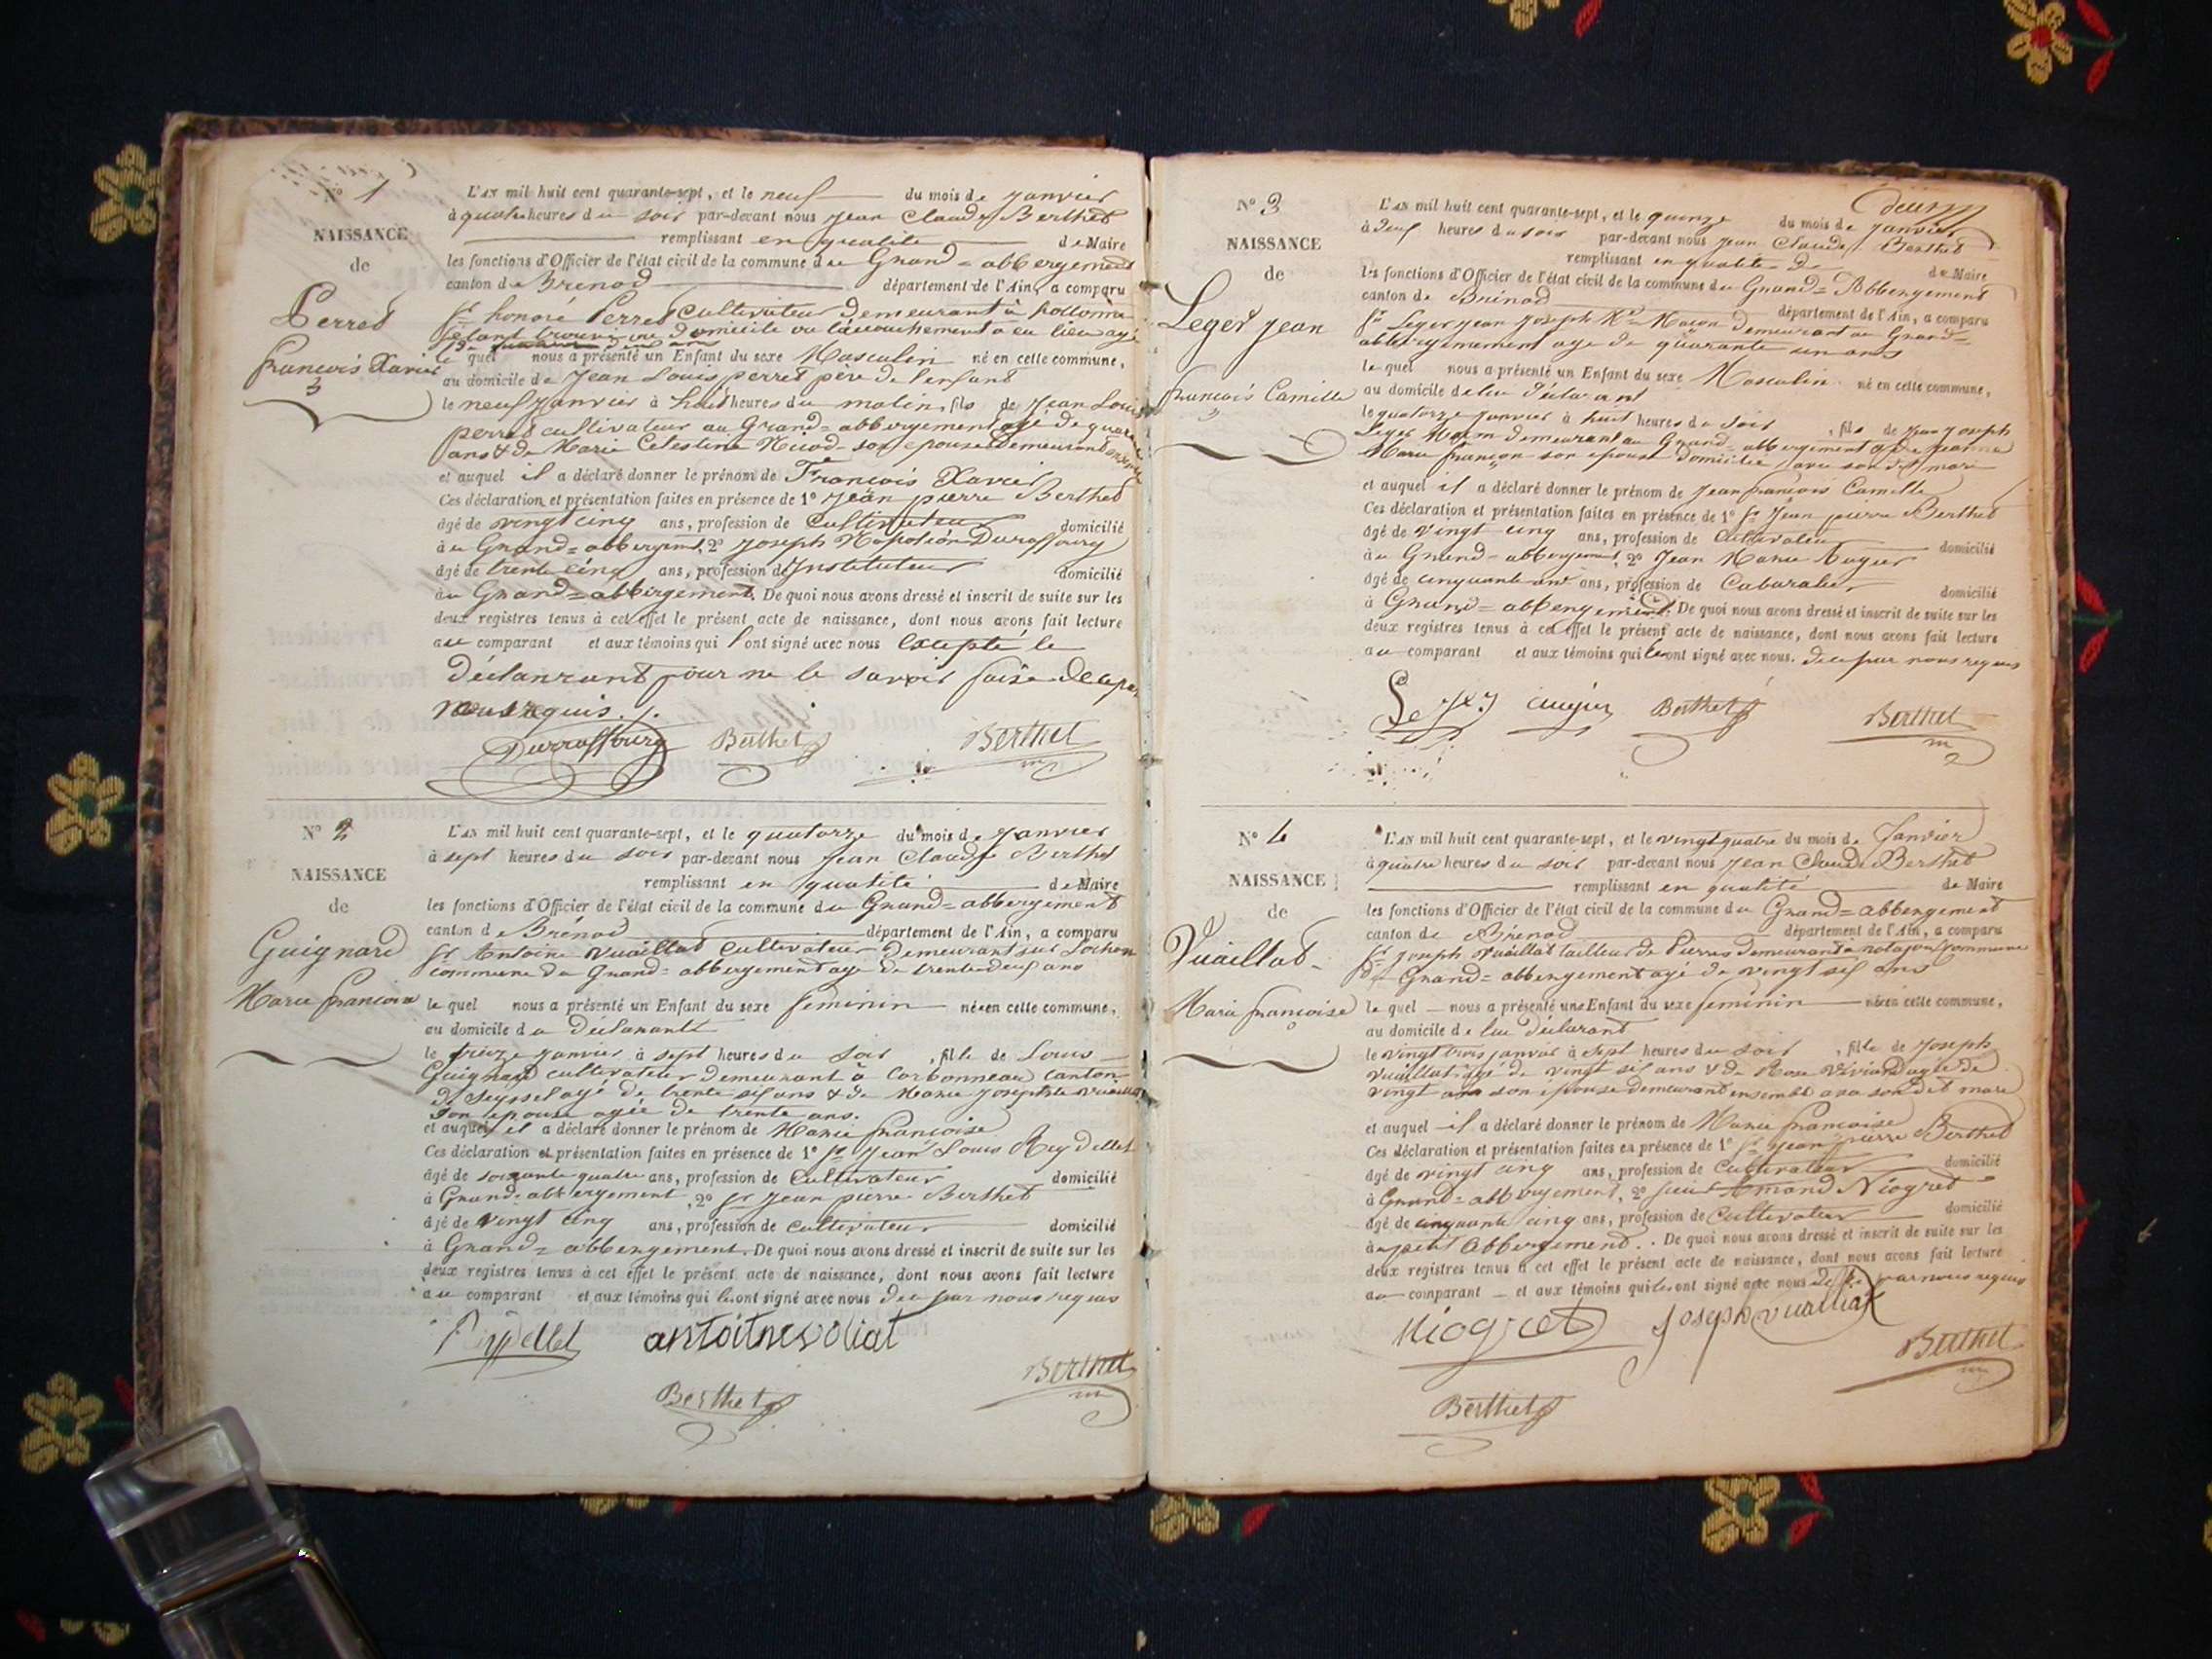 N° 1
NAISSANCE
de
Perret
François Xavier
L'AN mil huit cent quarante-sept, et le neuf du mois de Janvier
à quatre heures du soir par-devant nous Jean Claude Berthet
remplissant en qualité de Maire
les fonctions d'Officier de l'état civil de la commune du Grand=abbergement
canton de Brénod département de l'Ain, a comparu
Sr honoré Perret Cultivateur demeurant à
domicile ou l'accouchement a eu lieu agé
le quel nous a présenté un Enfant du sexe Masculin né en cette commune,
au domicile de Jean Louis perret père de l'enfant
le neuf Janvier à huit heures du matin, fils de Jean Louis
perret cultivateur au Grand=abbergement agé de
ans & de Marie Celestine Nicod son epouse demeurant
et auquel il a déclaré donner le prénom de François Xavier
Ces déclaration et présentation faites en présence de 1° Jean pierre Berthet
âgé de vingt cinq ans, profession de Cultivateur domicilié
à au Grand=abbergemt, 2° Joseph Napoléon Duraffourg
âgé de trente cinq ans, profession d'Instituteur domicilié
à au Grand=abbergement. De quoi nous avons dressé et inscrit de suite sur les
deux registres tenus à cet effet le présent acte de naissance, dont nous avons fait lecture
au comparant et aux témoins qui l'ont signé avec nous Excepté le
déclarant pour ne le savoir faire de ce par
nous requis
Durraffourg Berthet Berthet
N° 2
NAISSANCE
de
Guignard
Marie françoise
L'AN mil huit cent quarante-sept, et le quatorze du mois de Janvier
à sept heures du soir par-devant nous Jean Claude Berthet
remplissant en qualité de Maire
les fonctions d'Officier de l'état civil de la commune du Grand=abbergement
canton de Brénod département de l'Ain, a comparu
Sr Antoine Vuaillat Cultivateur demeurant sur
commune du Grand=abbergement agé de trente deux ans
le quel nous a présenté un Enfant du sexe feminin née en cette commune,
au domicile du déclarant
le treize janvier à sept heures du soir, fille de Louis
Guignard cultivateur demeurant à Corbonneau Canton
de Seyssel agé de trente six ans & de Marie Josephte
son epouse agée de trente ans.
et auquel il a déclaré donner le prénom de Marie françoise
Ces déclaration et présentation faites en présence de 1° Sr Jean Louis Reydellet
âgé de soixante quatre ans, profession de Cultivateur domicilié
à Grand=abbergement, 2° Sr Jean pierre Berthet
âgé de vingt cinq ans, profession de cultivateur domicilié
à Grand=abbergement. De quoi nous avons dressé et inscrit de suite sur les
deux registres tenus à cet effet le présent acte de naissance, dont nous avons fait lecture
au comparant et aux témoins qui l'ont signé avec nous de ce par nous requis
antoitnesvoliat
Berthet
Berthet
N° 3
NAISSANCE
de
Leger Jean
françois Camille
deux
L'AN mil huit cent quarante-sept, et le quinze du mois de Janvier
à deux heures du soir par-devant nous Jean Claude Berthet
remplissant en qualité de de Maire
les fonctions d'Officier de l'état civil de la commune du Grand=Abbergement
canton de Brénod département de l'Ain, a comparu
Sr Leger Jean Joseph Maçon demeurant au Grand=
abbergement agé de quarante un ans
le quel nous a présenté un Enfant du sexe Masculin né en cette commune,
au domicile de lui déclarant
le quatorze janvier à huit heures du soir, fils de Jean Joseph
Leger demeurant au Grand=abbergement & de Jeanne
Marie son epouse domiciliée avec son dit mari
et auquel il a déclaré donner le prénom de Jean françois Camille
Ces déclaration et présentation faites en présence de 1° Sr Jean pierre Berthet
âgé de vingt cinq ans, profession de Cultivateur domicilié
à au Grand=abbergement, 2° Jean Marie
âgé de cinquante ans, profession de Cabaratier domicilié
à Grand=abbergement. De quoi nous avons dressé et inscrit de suite sur les
deux registres tenus à cet effet le présent acte de naissance, dont nous avons fait lecture
au comparant et aux témoins qui l'ont signé avec nous. de ce par nous requis
Berthet Berthet
N° 4
NAISSANCE
de
Vuaillat
Marie françoise
L'AN mil huit cent quarante-sept, et le vingt quatre du mois de Janvier
à quatre heures du soir par-devant nous Jean Claude Berthet
remplissant en qualité de Maire
les fonctions d'Officier de l'état civil de la commune du Grand=abbergement
canton de Brénod département de l'Ain, a comparu
Sr Joseph Vuaillat tailleur de Pierres demeurant à commune
du Grand=abbergement agé de vingt six ans
le quel nous a présenté une Enfant du sexe feminin née en cette commune,
au domicile de lui déclarant
le vingt trois janvier à sept heures du soir, fille de Joseph
Vuaillat agé de vingt six ans & de Rose Viviand agée de
vingt ans son épouse demeurant ensemble avec son dit mari
et auquel il a déclaré donner le prénom de Marie françoise
Ces déclaration et présentation faites en présence de 1° Sr Jean pierre Berthet
âgé de vingt cinq ans, profession de Cultivateur domicilié
à Grand=abbergement, 2° sieur Armand Niogret
âgé de cinquante cinq ans, profession de Cultivateur domicilié
à au petit Abbergement. De quoi nous avons dressé et inscrit de suite sur les
deux registres tenus à cet effet le présent acte de naissance, dont nous avons fait lecture
au comparant et aux témoins qui l'ont signé avec nous de ce par nous requis
Niogret Joseph vuailliat
Berthet
Berthet